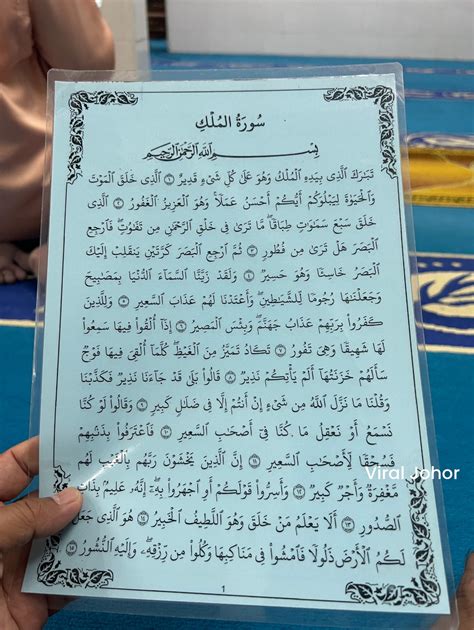 سُورَةُ الْمُلْكِ
بِسْمِ اللَّهِ الرَّحْمَٰنِ الرَّحِيمِ
تَبَٰرَكَ ٱلَّذِى بِيَدِهِ ٱلْمُلْكُ وَهُوَ عَلَىٰ كُلِّ شَىْءٍ قَدِيرٌ ١ ٱلَّذِى خَلَقَ ٱلْمَوْتَ
وَٱلْحَيَوٰةَ لِيَبْلُوَكُمْ أَيُّكُمْ أَحْسَنُ عَمَلًا وَهُوَ ٱلْعَزِيزُ ٱلْغَفُورُ ٢ ٱلَّذِى
خَلَقَ سَبْعَ سَمَٰوَٰتٍ طِبَاقًا مَّا تَرَىٰ فِى خَلْقِ ٱلرَّحْمَٰنِ مِن تَفَٰوُتٍ فَٱرْجِعِ
ٱلْبَصَرَ هَلْ تَرَىٰ مِن فُطُورٍ ٣ ثُمَّ ٱرْجِعِ ٱلْبَصَرَ كَرَّتَيْنِ يَنقَلِبْ إِلَيْكَ
ٱلْبَصَرُ خَاسِئًا وَهُوَ حَسِيرٌ ٤ وَلَقَدْ زَيَّنَّا ٱلسَّمَآءَ ٱلدُّنْيَا بِمَصَٰبِيحَ
وَجَعَلْنَٰهَا رُجُومًا لِّلشَّيَٰطِينِ وَأَعْتَدْنَا لَهُمْ عَذَابَ ٱلسَّعِيرِ ٥ وَلِلَّذِينَ
كَفَرُوا۟ بِرَبِّهِمْ عَذَابُ جَهَنَّمَ وَبِئْسَ ٱلْمَصِيرُ ٦ إِذَآ أُلْقُوا۟ فِيهَا سَمِعُوا۟
لَهَا شَهِيقًا وَهِىَ تَفُورُ ٧ تَكَادُ تَمَيَّزُ مِنَ ٱلْغَيْظِ كُلَّمَآ أُلْقِىَ فِيهَا فَوْجٌ
سَأَلَهُمْ خَزَنَتُهَآ أَلَمْ يَأْتِكُمْ نَذِيرٌ ٨ قَالُوا۟ بَلَىٰ قَدْ جَآءَنَا نَذِيرٌ فَكَذَّبْنَا
وَقُلْنَا مَا نَزَّلَ ٱللَّهُ مِن شَىْءٍ إِنْ أَنتُمْ إِلَّا فِى ضَلَٰلٍ كَبِيرٍ ٩ وَقَالُوا۟ لَوْ كُنَّا
نَسْمَعُ أَوْ نَعْقِلُ مَا كُنَّا فِىٓ أَصْحَٰبِ ٱلسَّعِيرِ ١٠ فَٱعْتَرَفُوا۟ بِذَنۢبِهِمْ
فَسُحْقًا لِّأَصْحَٰبِ ٱلسَّعِيرِ ١١ إِنَّ ٱلَّذِينَ يَخْشَوْنَ رَبَّهُم بِٱلْغَيْبِ لَهُم
مَّغْفِرَةٌ وَأَجْرٌ كَبِيرٌ ١٢ وَأَسِرُّوا۟ قَوْلَكُمْ أَوِ ٱجْهَرُوا۟ بِهِۦٓ إِنَّهُۥ عَلِيمٌۢ بِذَاتِ
ٱلصُّدُورِ ١٣ أَلَا يَعْلَمُ مَنْ خَلَقَ وَهُوَ ٱللَّطِيفُ ٱلْخَبِيرُ ١٤ هُوَ ٱلَّذِى جَعَلَ
لَكُمُ ٱلْأَرْضَ ذَلُولًا فَٱمْشُوا۟ فِى مَنَاكِبِهَا وَكُلُوا۟ مِن رِّزْقِهِۦ وَإِلَيْهِ ٱلنُّشُورُ ١٥
1
Viral Johor